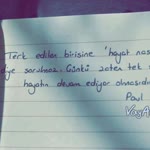 Terk edilen birisine 'hayat nas
diye sorulmaz. Çünkü zaten tek
hayatın devam ediyor olmasıdır
Paul